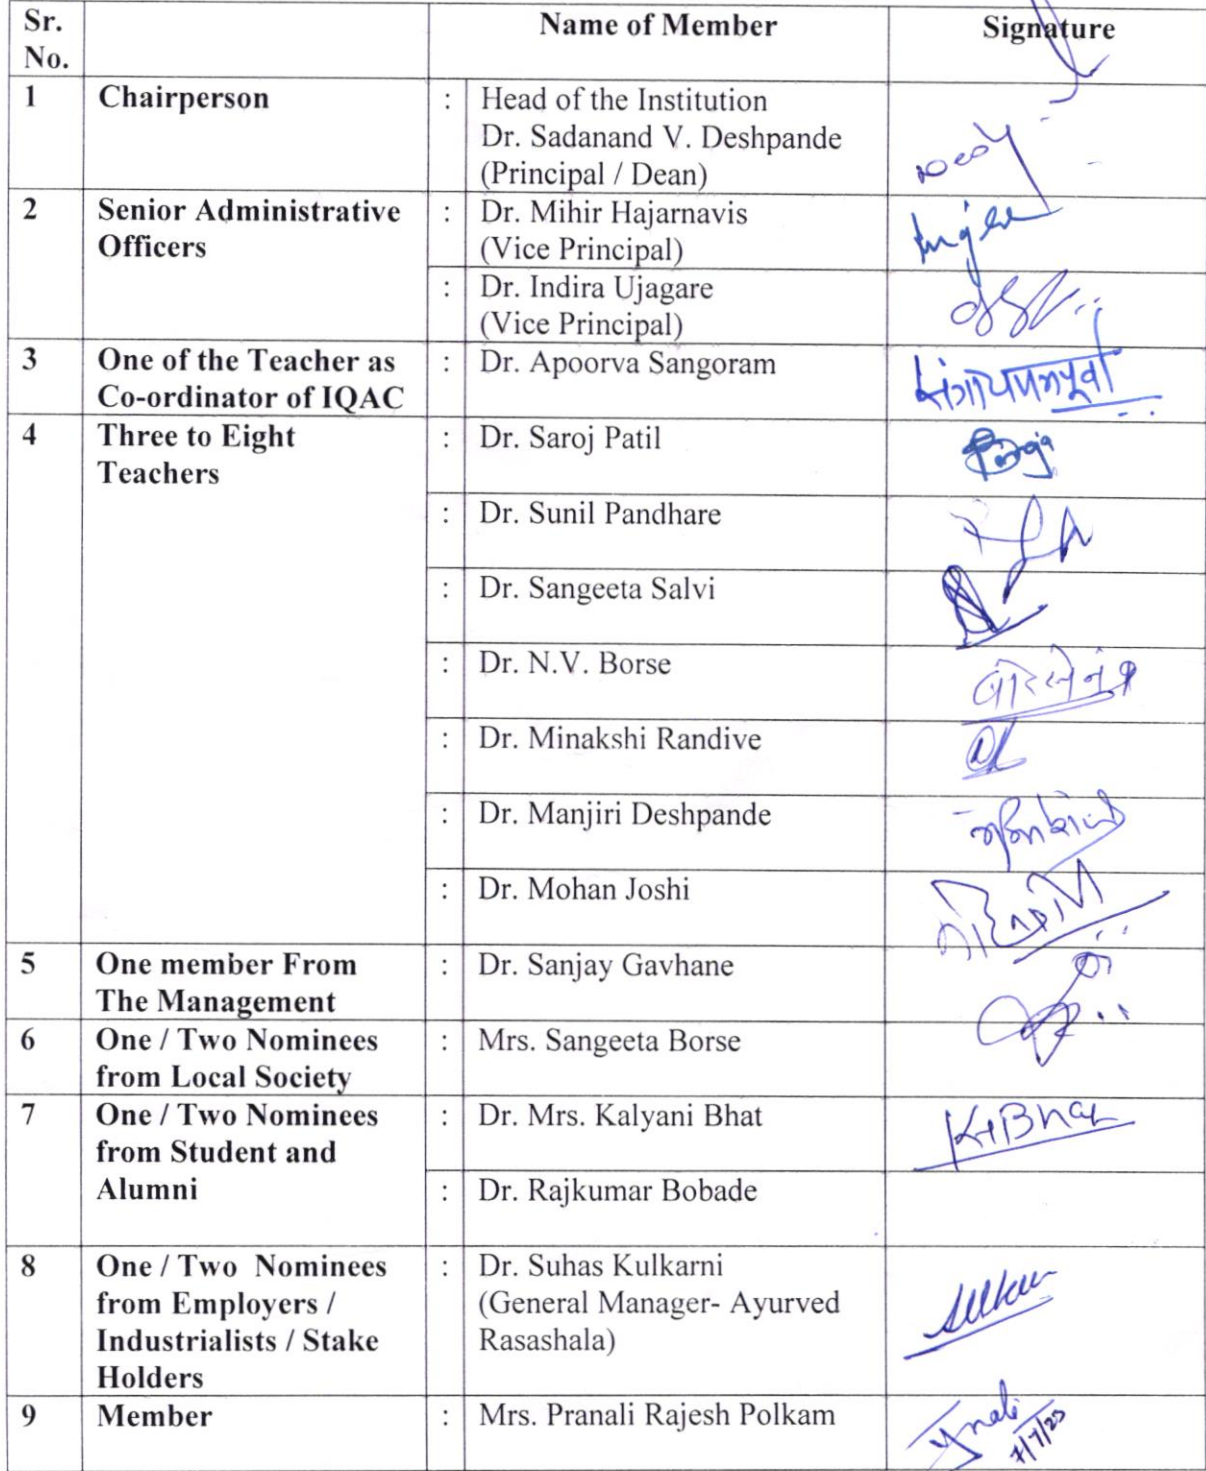 Sr. No. Name of Member Signature
1 Chairperson : Head of the Institution
Dr. Sadanand V. Deshpande
(Principal / Dean)
2 Senior Administrative Officers : Dr. Mihir Hajarnavis
(Vice Principal)
: Dr. Indira Ujagare
(Vice Principal)
3 One of the Teacher as Co-ordinator of IQAC : Dr. Apoorva Sangoram
4 Three to Eight Teachers : Dr. Saroj Patil
: Dr. Sunil Pandhare
: Dr. Sangeeta Salvi
: Dr. N.V. Borse
: Dr. Minakshi Randive
: Dr. Manjiri Deshpande
: Dr. Mohan Joshi
5 One member From The Management : Dr. Sanjay Gavhane
6 One / Two Nominees from Local Society : Mrs. Sangeeta Borse
7 One / Two Nominees from Student and Alumni : Dr. Mrs. Kalyani Bhat
KBhat
: Dr. Rajkumar Bobade
8 One / Two Nominees from Employers / Industrialists / Stake Holders : Dr. Suhas Kulkarni
(General Manager- Ayurved Rasashala)
9 Member : Mrs. Pranali Rajesh Polkam